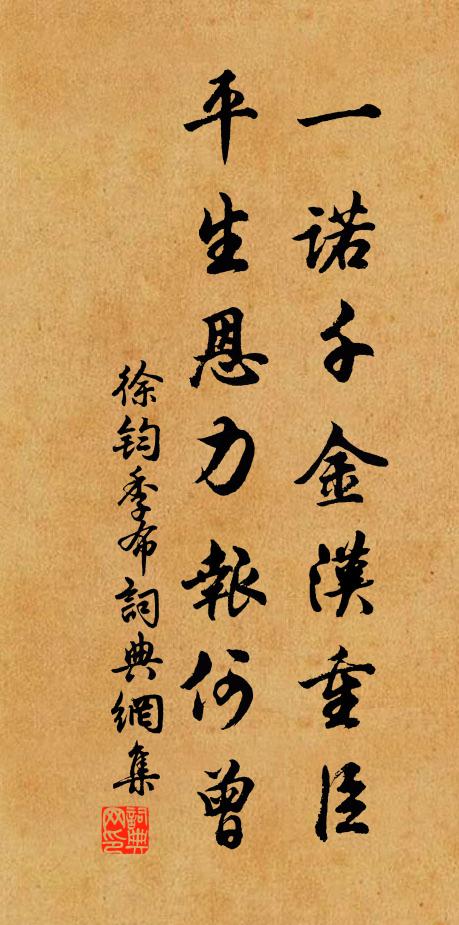 一諾千金漢重臣
平生恩力報何曾
徐鈞季布詞典網集
詞典网印